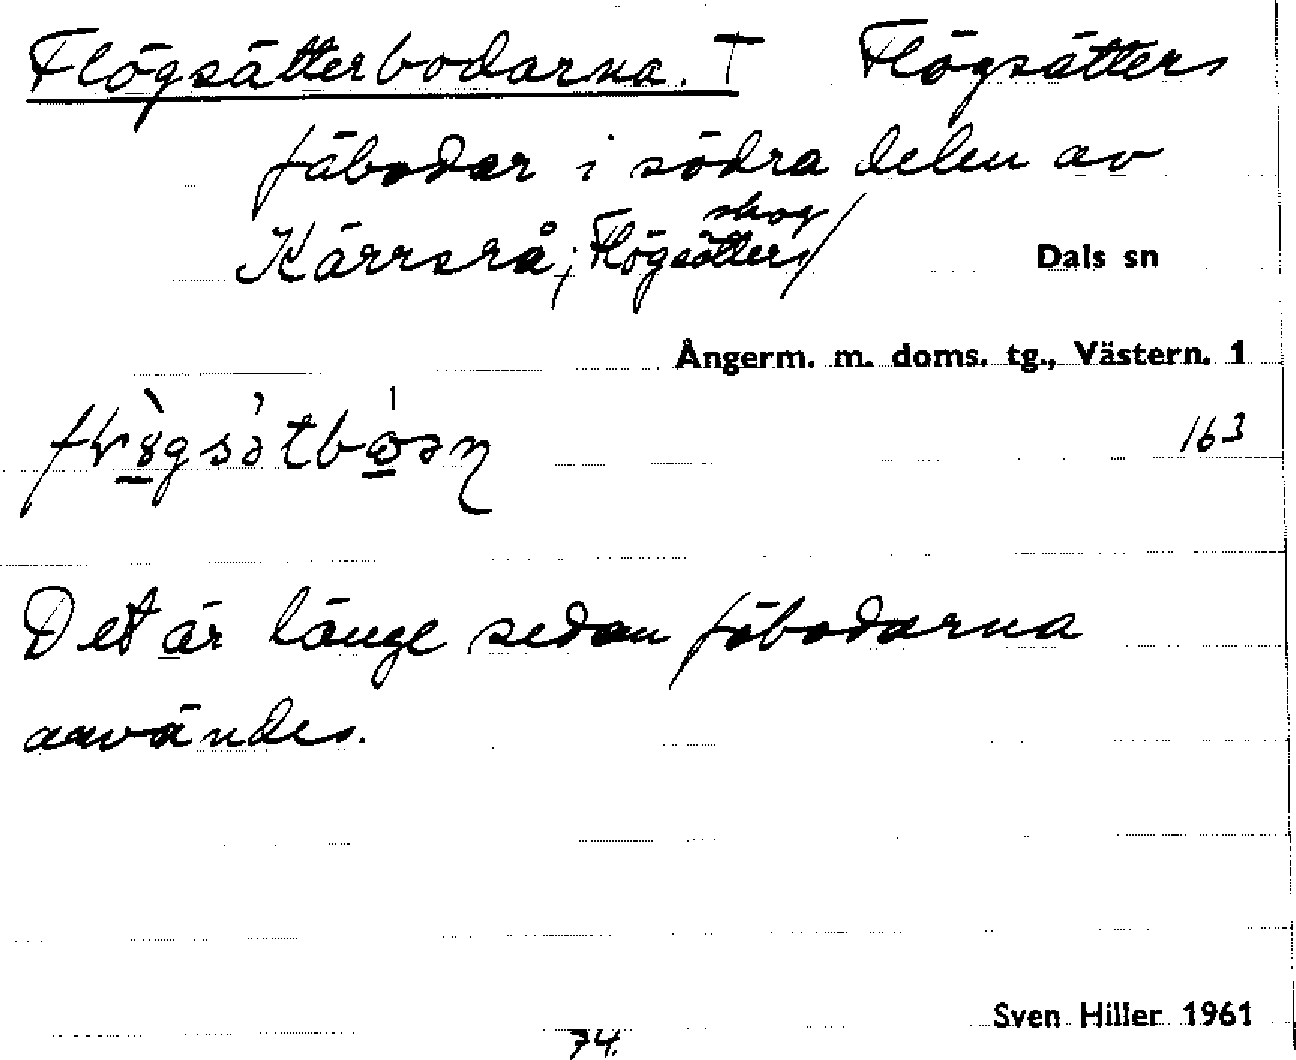 Flögsätterbodarna. T Flögsätters
fäbodar i södra delen av
Kärrsrå; Flögsätters skog/ Dals sn
Ångerm. m. doms. tg., Västern. 1
163
Det är länge sedan fäbodarna
användes.
Sven Hiller 1961
74.